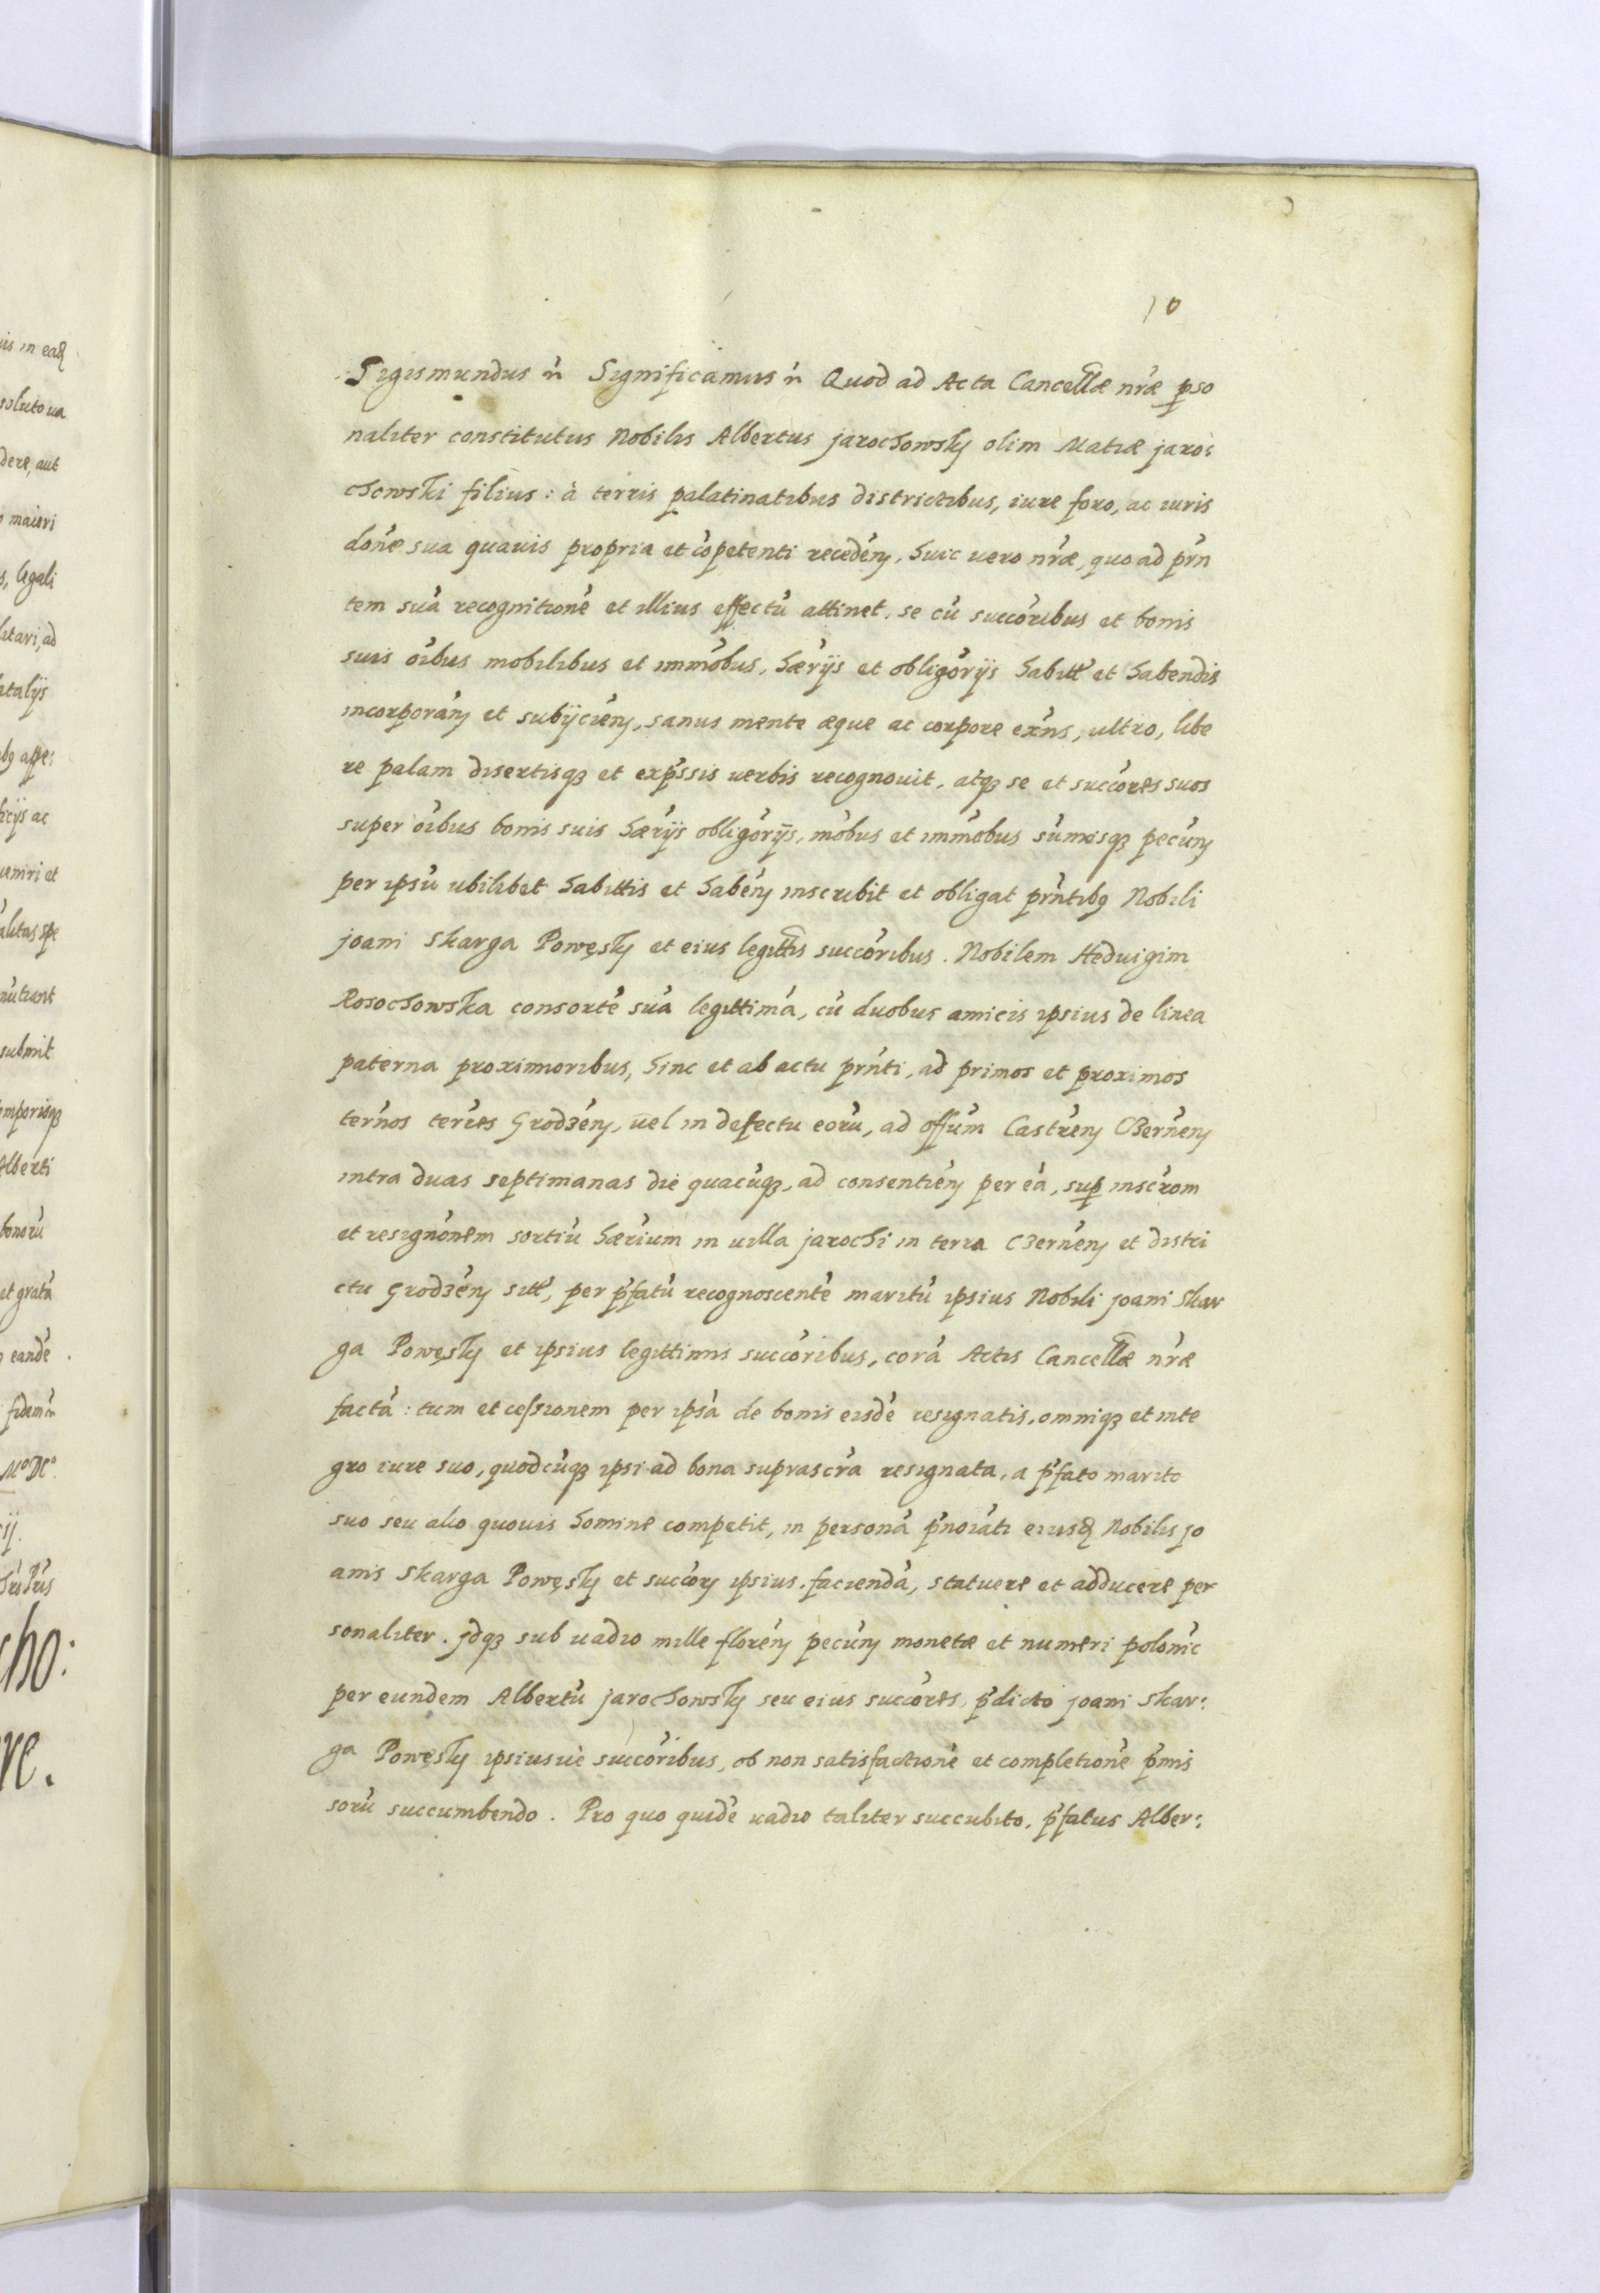 10
Sigismundus ñ Significamus ñ Quod ad Acta Cancellæ nr̃æ pso
naliter constitutus Nobilis Albertus Jarochowsky olim Matiæ Jaro:
chowski filius: à terris palatinatibus districtibus, iure foro, ac iuris
done sua quavis propria et cõpetenti recedeñ, huic uero nr̃æ, quo ad prñ
tem suã recognitionẽ et illius effectũ attinet, se cũ succõribus et bonis
suis oĩbus mobilibus et immõbus, hær̃ijs et obligõrijs habitt̃ et habendis
incorporañ et subijcieñ, sanus mente æque ac corpore exñs, ultro, libe
re palam disertisq3 et exp̃ssis uerbis recognouit, atq3 se et succõres suos
super oĩbus bonis suis hær̃ijs obligõrijs, mõbus et immõbus sũmisq3 pecuñ
per ipsũ ubilibet habittis et habeñ inscribit et obligat prñtibq Nobili
Joani Skarga Powęsky et eius legittis succõribus. Nobilem Hedvigim
Rosochowska consortẽ suã legittimã, cũ duobus amicis ipsius de linea
paterna proximioribus, hinc et ab actu prñti, ad primos et proximos
terños terr̃es Grod3eñ, uel in defectu eorũ, ad offũm Castreñ C3erñeñ
intra duas septimanas die quacũq3, ad consentieñ per eã, sup inscr̃om
et resignõnem sortiũ hær̃ium in uilla Jarochi in terra C3erñeñ et distri
ctu Grod3eñ sitt̃, per p̃fatũ recognoscentẽ maritũ ipsius Nobili Joani Skar
ga Powęsky et ipsius legittimis succõribus, corã Actis Cancellæ nr̃æ
factã: tum et cessionem per ipsã de bonis eisdẽ resignatis, omniq3 et inte
gro iure suo, quodcũq3 ipsi ad bona suprascr̃a resignata, a p̃fato marito
suo seu alio quouis homine competit, in personã p̃noĩati eiusd Nobilis Jo
anis Skarga Powęsky et succõr̃ ipsius faciendã, statuere et adducere per
sonaliter. Jdq3 sub uadio mille floreñ pecuñ monetæ et numeri polonic
per eundem Albertũ Jarochowsky seu eius succõres, p̃dicto Joani Skar:
ga Powęsky ipsiusuè succõribus, ob non satisfactionẽ et completionẽ p̃mis
sorũ succumbendo. Pro quo quidẽ uadio taliter succubito, p̃fatus Alber: